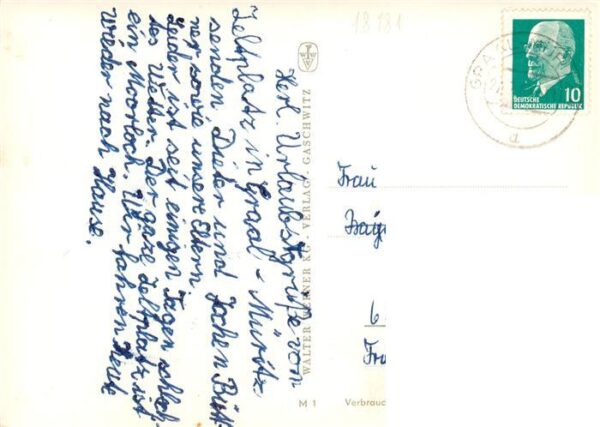 18 181
Herl. Urlaubsgrüße vom
Zeltplatz in Graal-Müritz
senden Dieter und Jochen Bütt-
ner sowie unsere Eltern.
Leider ist seit einigen Tagen schlech-
tes Wetter. Der gaze Zeltplatz ist
ein Moorloch. Wir fahren heute
wieder nach Hause.
WALTER WERNER KG - VERLAG - GASCHWITZ
M 1
Verbrauc
10
DEUTSCHE
DEMOKRATISCHE REPUBLIK
GRAAL
a
Frau
6
Fra